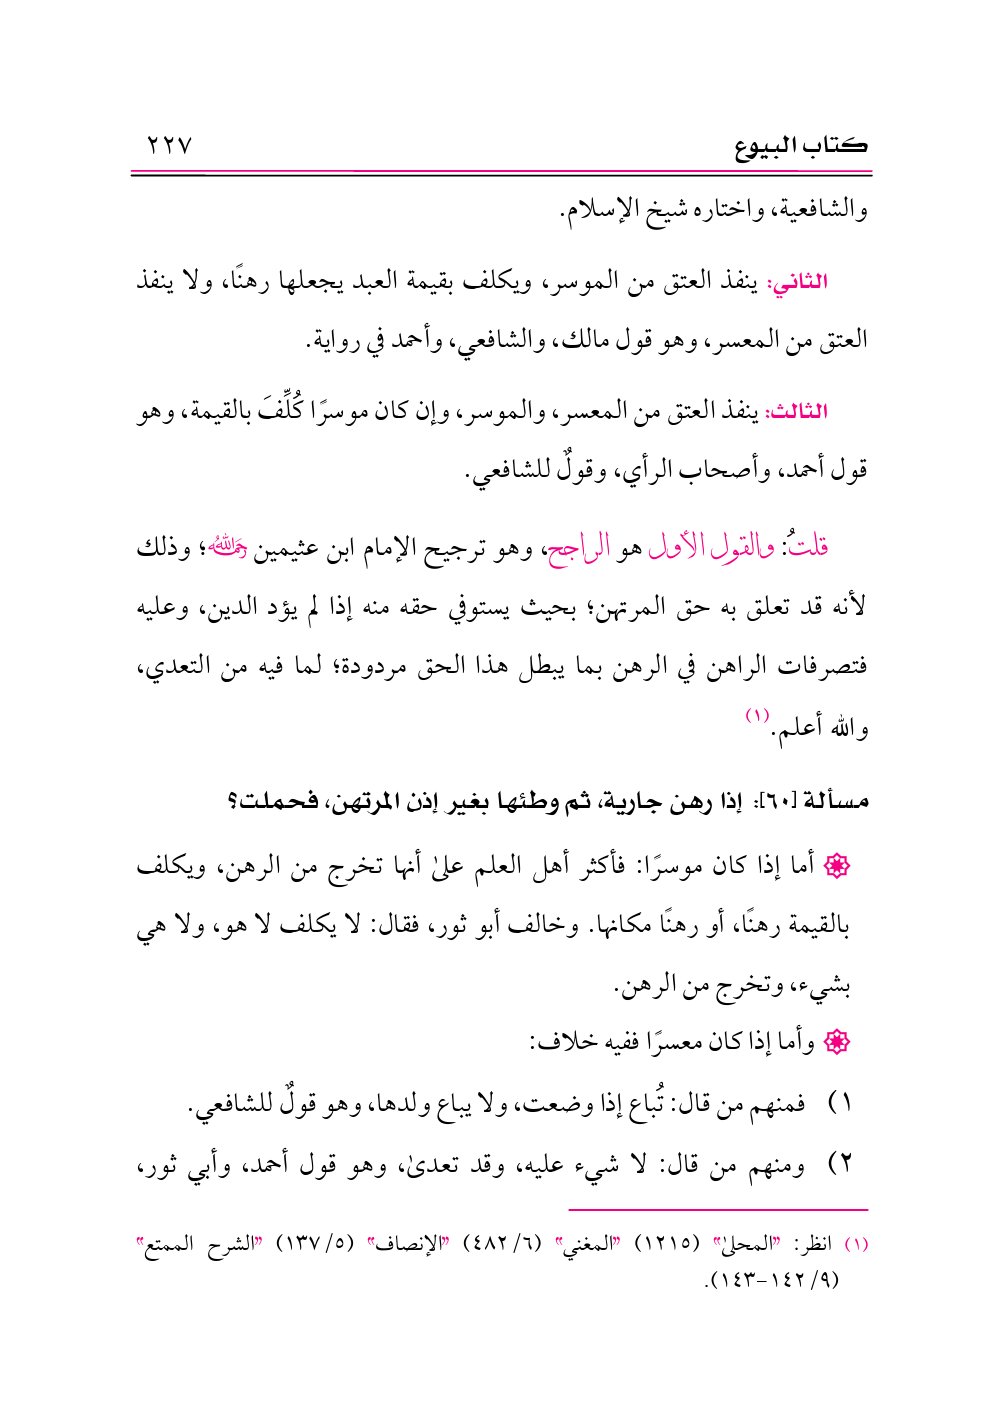 كتاب البيوع ٢٢٧
والشافعية، واختاره شيخ الإسلام.
الثاني: ينفذ العتق من الموسر، ويكلف بقيمة العبد يجعلها رهنًا، ولا ينفذ
العتق من المعسر، وهو قول مالك، والشافعي، وأحمد في رواية.
الثالث: ينفذ العتق من المعسر، والموسر، وإن كان موسرًا كُلِّفَ بالقيمة، وهو
قول أحمد، وأصحاب الرأي، وقولٌ للشافعي.
قلتُ: والقول الأول هو الراجح، وهو ترجيح الإمام ابن عثيمين رحمه الله؛ وذلك
لأنه قد تعلق به حق المرتهن؛ بحيث يستوفي حقه منه إذا لم يؤد الدين، وعليه
فتصرفات الراهن في الرهن بما يبطل هذا الحق مردودة؛ لما فيه من التعدي،
والله أعلم.(١)
مسألة [٦٠]: إذا رهن جارية، ثم وطئها بغير إذن المرتهن، فحملت؟
أما إذا كان موسرًا: فأكثر أهل العلم علىٰ أنها تخرج من الرهن، ويكلف
بالقيمة رهنًا، أو رهنًا مكانها. وخالف أبو ثور، فقال: لا يكلف لا هو، ولا هي
بشيء، وتخرج من الرهن.
وأما إذا كان معسرًا ففيه خلاف:
١) فمنهم من قال: تُباع إذا وضعت، ولا يباع ولدها، وهو قولٌ للشافعي.
٢) ومنهم من قال: لا شيء عليه، وقد تعدىٰ، وهو قول أحمد، وأبي ثور،
(١) انظر: "المحلىٰ" (١٢١٥) "المغني" (٦/ ٤٨٢) "الإنصاف" (٥/ ١٣٧) "الشرح الممتع"
(٩/ ١٤٢-١٤٣).